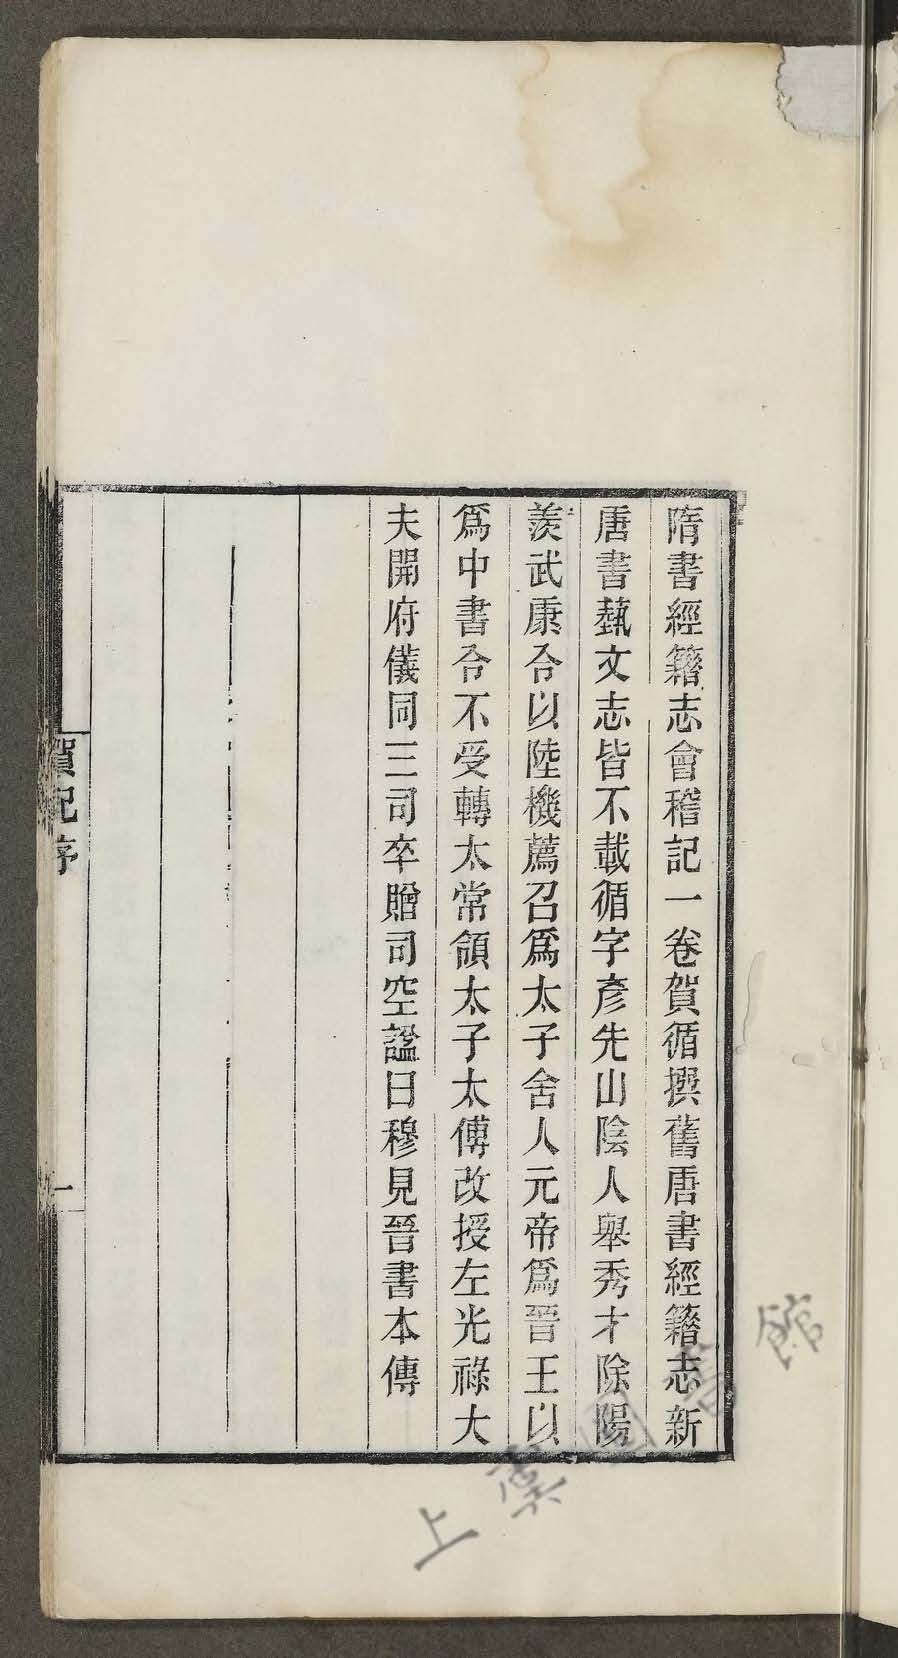 隋書經籍志會稽記一卷賀循撰舊唐書經籍志新
唐書藝文志皆不載循字彥先山陰人舉秀才除陽
羨武康令以陸機薦召爲太子舍人元帝爲晉王以
爲中書令不受轉太常領太子太傅改授左光祿大
夫開府儀同三司卒贈司空諡曰穆見晉書本傳
賀記序
一
上虞圖書館